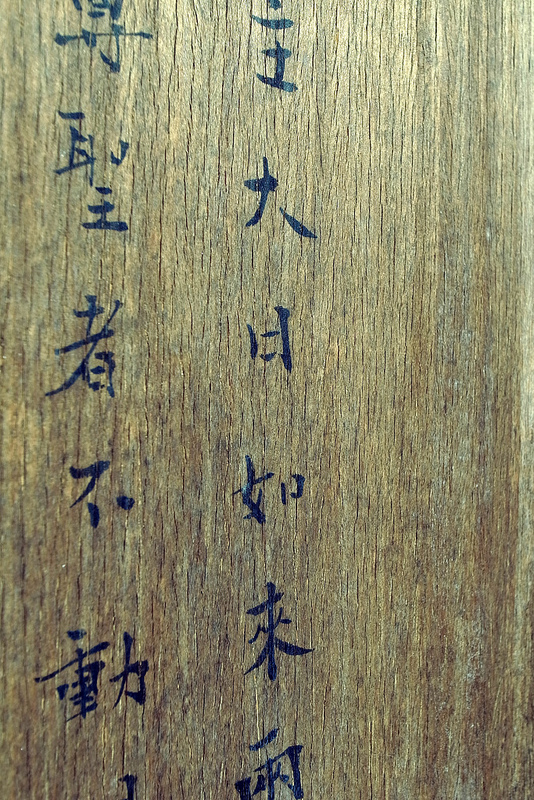 主大日如來兩
尊聖者不動